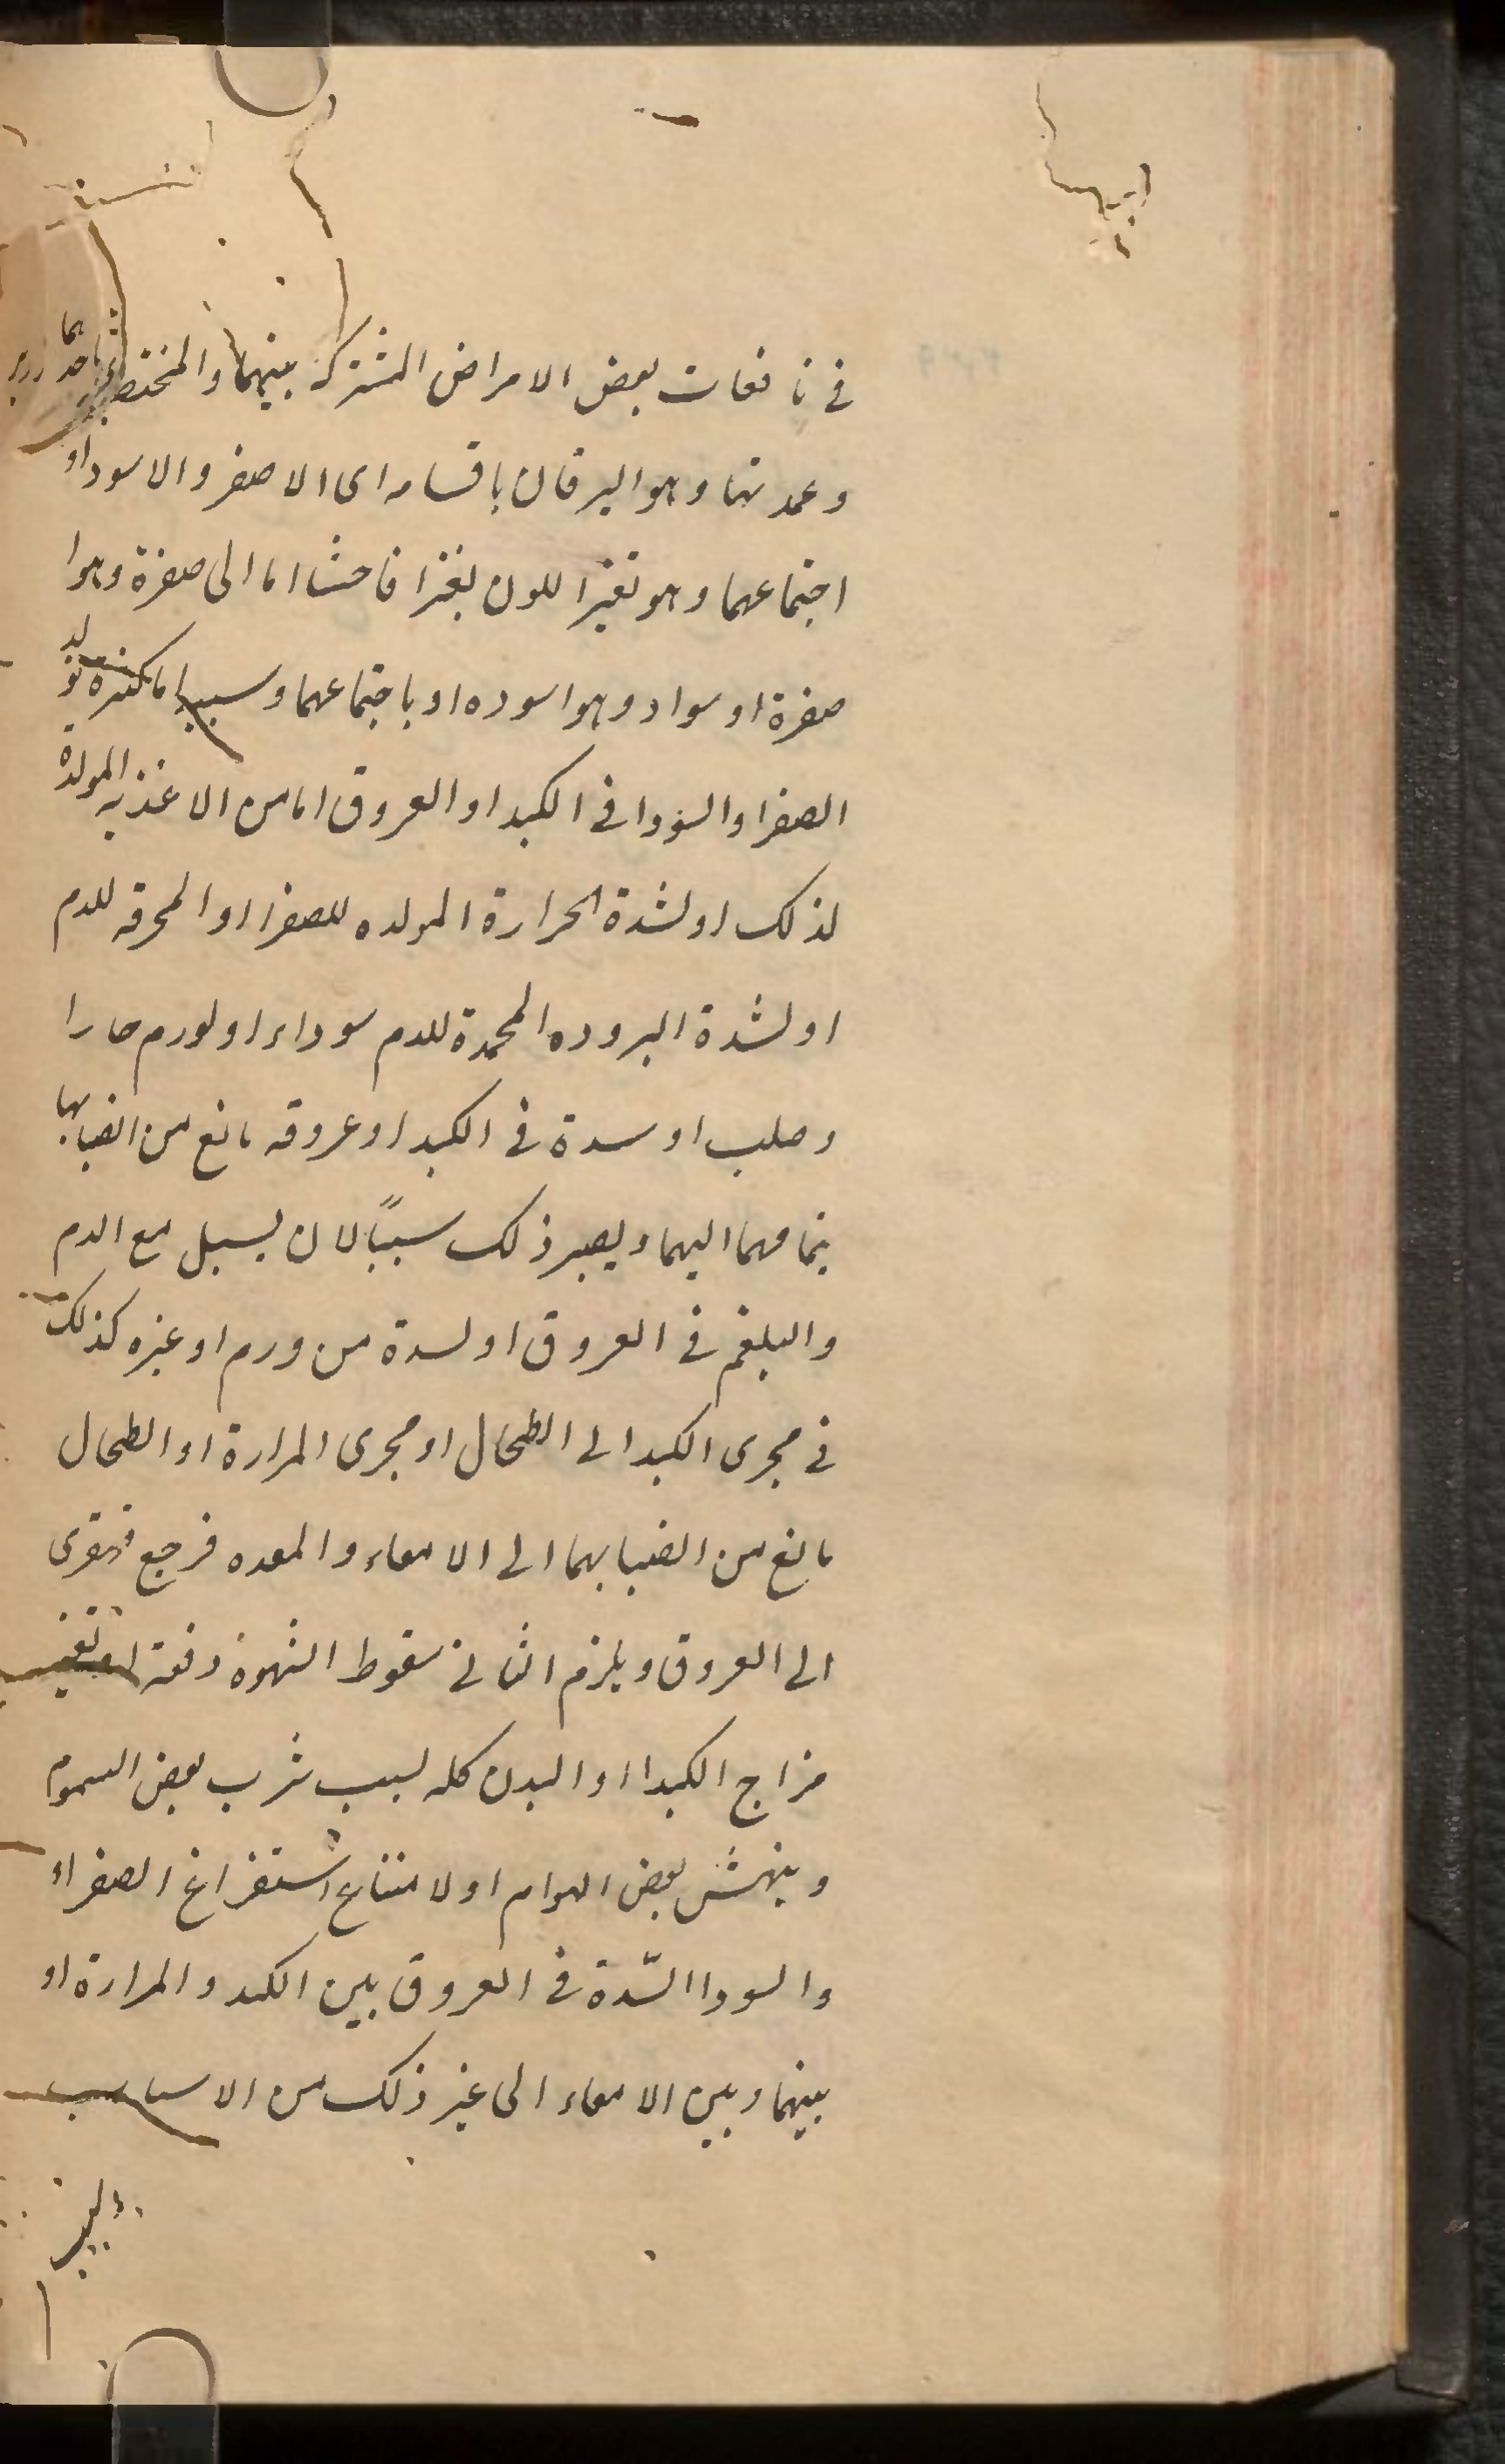 في نافعات بعض الامراض المشتركة بينهما والمختصة باحدهما
وعمدتها وهو اليرقان باقسامه اى الاصفر والاسود او
اجتماعهما وهو تغير اللون تغيرا فاحشا اما الى صفرة وهو ا
صفرة او سواد وهو اسوده او باجتماعهما وسببه اما كثرة تولد
الصفرا والسودا في الكبد او العروق اما من الاغذيه المولدة
لذلك او لشدة الحرارة المولده للصفرا او المحرقه للدم
او لشدة البروده المجمدة للدم سوداء او لورم حار ا
وصلب او سدة في الكبد او عروقه مانع من انصبابها
بتمامهما اليهما ويصير ذلك سببًا لان يسيل مع الدم
والبلغم في العروق او لسدة من ورم او غيره كذلك
في مجرى الكبد الى الطحال او مجرى المرارة او الطحال
مانع من انصبابهما الى الامعاء والمعده فرجع قهقرى
الى العروق ويلزم الثاني سقوط الشهوة دفعة او تغير
مزاج الكبد او البدن كله لسبب شرب بعض السموم
وينهش بعض الهوام او لامتناع استفراغ الصفراء
والسودا السّدة في العروق بين الكبد والمرارة او
بينهما وبين الامعاء الى غير ذلك من الاسباب